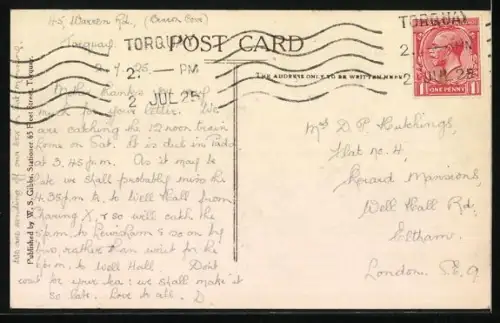 45, Warren Rd., (Cerra Com)
Torquay.
2.7.25.
My dear, thanks you very
much for your letter. We
are catching the 12 noon train
home on Sat. It is due in Padd
at 3.45 p.m. As it may be
late we shall probably miss the
4.38 p.m. to Well Hall from
Charing X, & so will catch the
p.m. to Lewisham & go on by
bus, rather than wait for the
p.m. to Well Hall. Dont
wait for your tea: we shall make it
so late. Love to all. D.
We are sending
Published by W. S. Gibbs, Stationer, 45 Fleet Street, Torquay.
POST CARD
THE ADDRESS ONLY TO BE WRITTEN HERE
TORQUAY
2. - PM
2 JUL 25
TORQUAY
2. - PM
2 JUL 25
ONE PENNY
Mrs D. P. Hutchings,
Flat no. 4,
Mansions,
Well Hall Rd,
Eltham.
London. S.E.9.